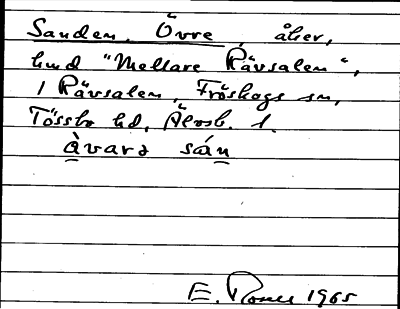 Sanden, Övre, åker,
hmd "Mellare Rävsalen",
1 Rävsalen, Fröskogs sn,
Tössbo hd, Älvsb. l.
Àvarə sán
E. 1965